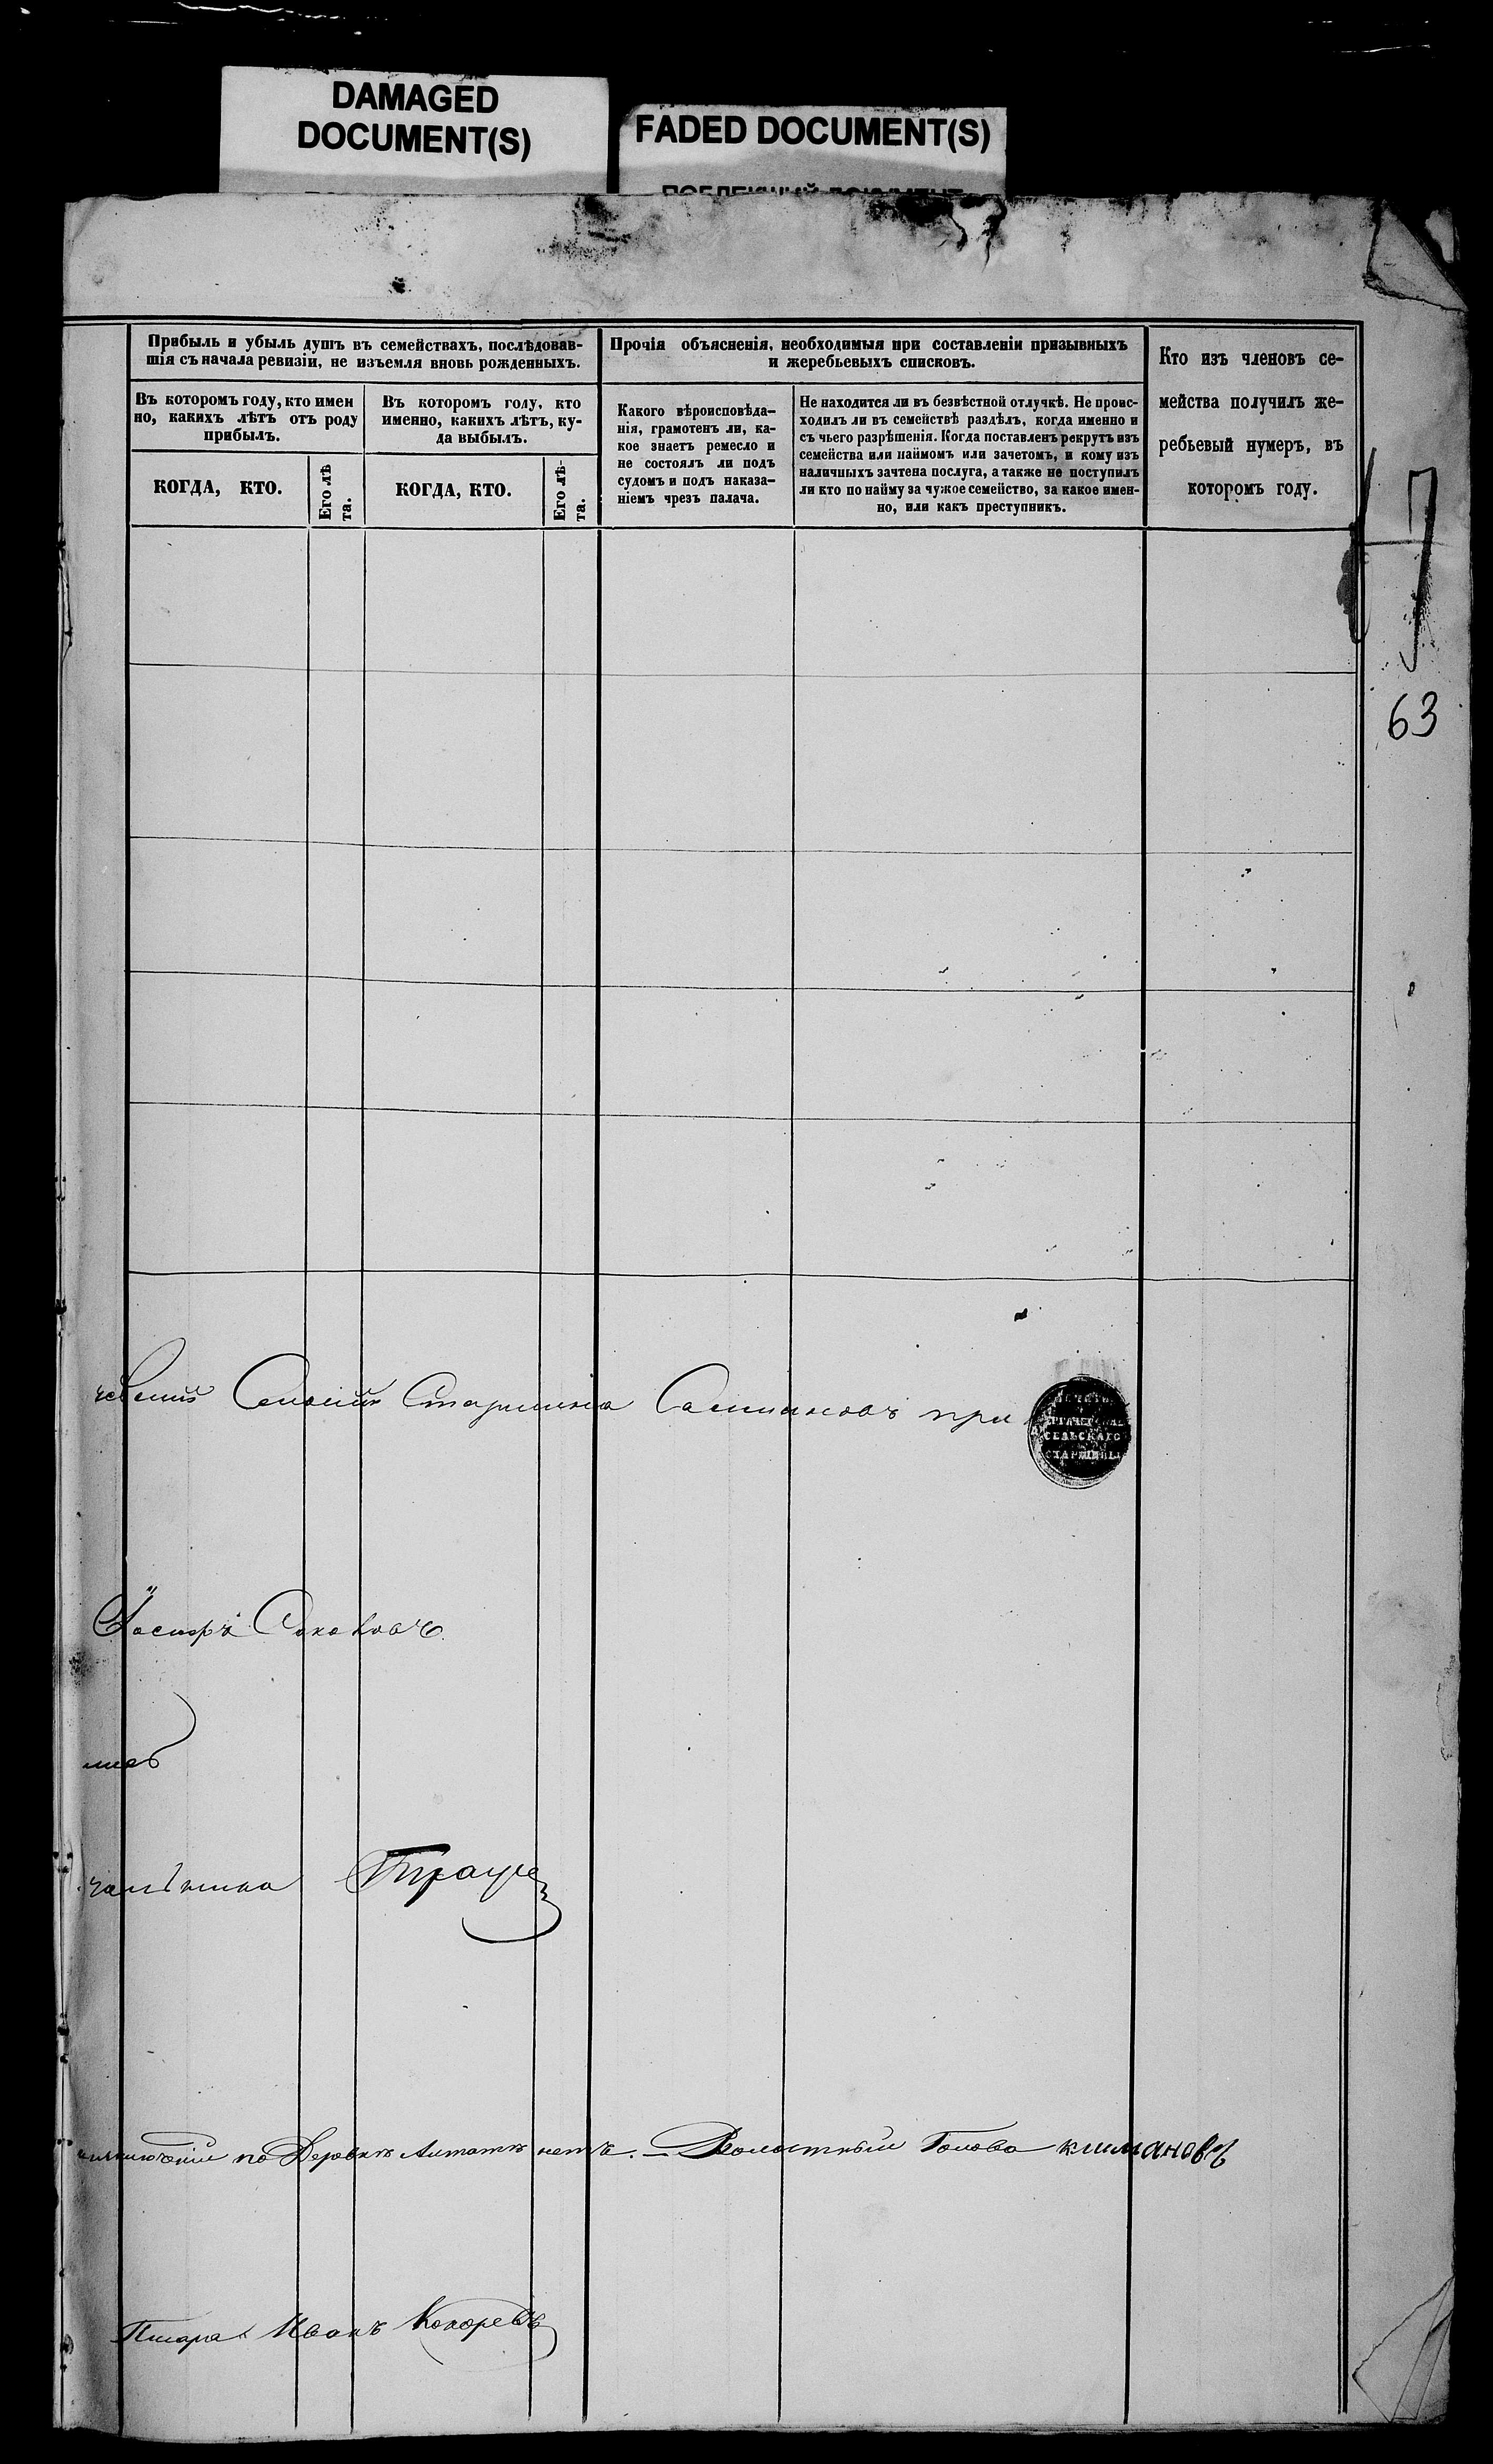 DAMAGED
DOCUMENT(S)
FADED DOCUMENT(S)
Прибыль и убыль душъ въ семействахъ, послѣдовав-
шія съ начала ревизіи, не изъемля вновь рожденныхъ.
Въ которомъ году, кто имен
но, какихъ лѣтъ отъ роду
прибылъ.
Въ которомъ году, кто
именно, какихъ лѣтъ, ку-
да выбылъ.
КОГДА, КТО.
Его лѣ
та.
КОГДА, КТО.
Его лѣ-
та.
Прочія объясненія, необходимыя при составленіи призывныхъ
и жеребьевыхъ списковъ.
Какого вѣроисповѣда-
нія, грамотенъ ли, ка-
кое знаетъ ремесло и
не состоялъ ли подъ
судомъ и подъ наказа-
ніемъ чрезъ палача.
Не находится ли въ безвѣстной отлучкѣ. Не проис-
ходилъ ли въ семействѣ раздѣлъ, когда именно и
съ чьего разрѣшенія. Когда поставленъ рекрутъ изъ
семейства или наймомъ или зачетомъ, и кому изъ
наличныхъ зачтена послуга, а также не поступилъ
ли кто по найму за чужое семейство, за какое имен-
но, или какъ преступникъ.
Кто изъ членовъ се-
мейства получилъ же-
ребьевый нумеръ, въ
которомъ году.
63
Старшина при
СЕЛЬСКАГО
СТАРШИНЫ
по Деревнѣ нетъ. — Волостный Голова климановъ
Писарь Иванъ Кокоревъ